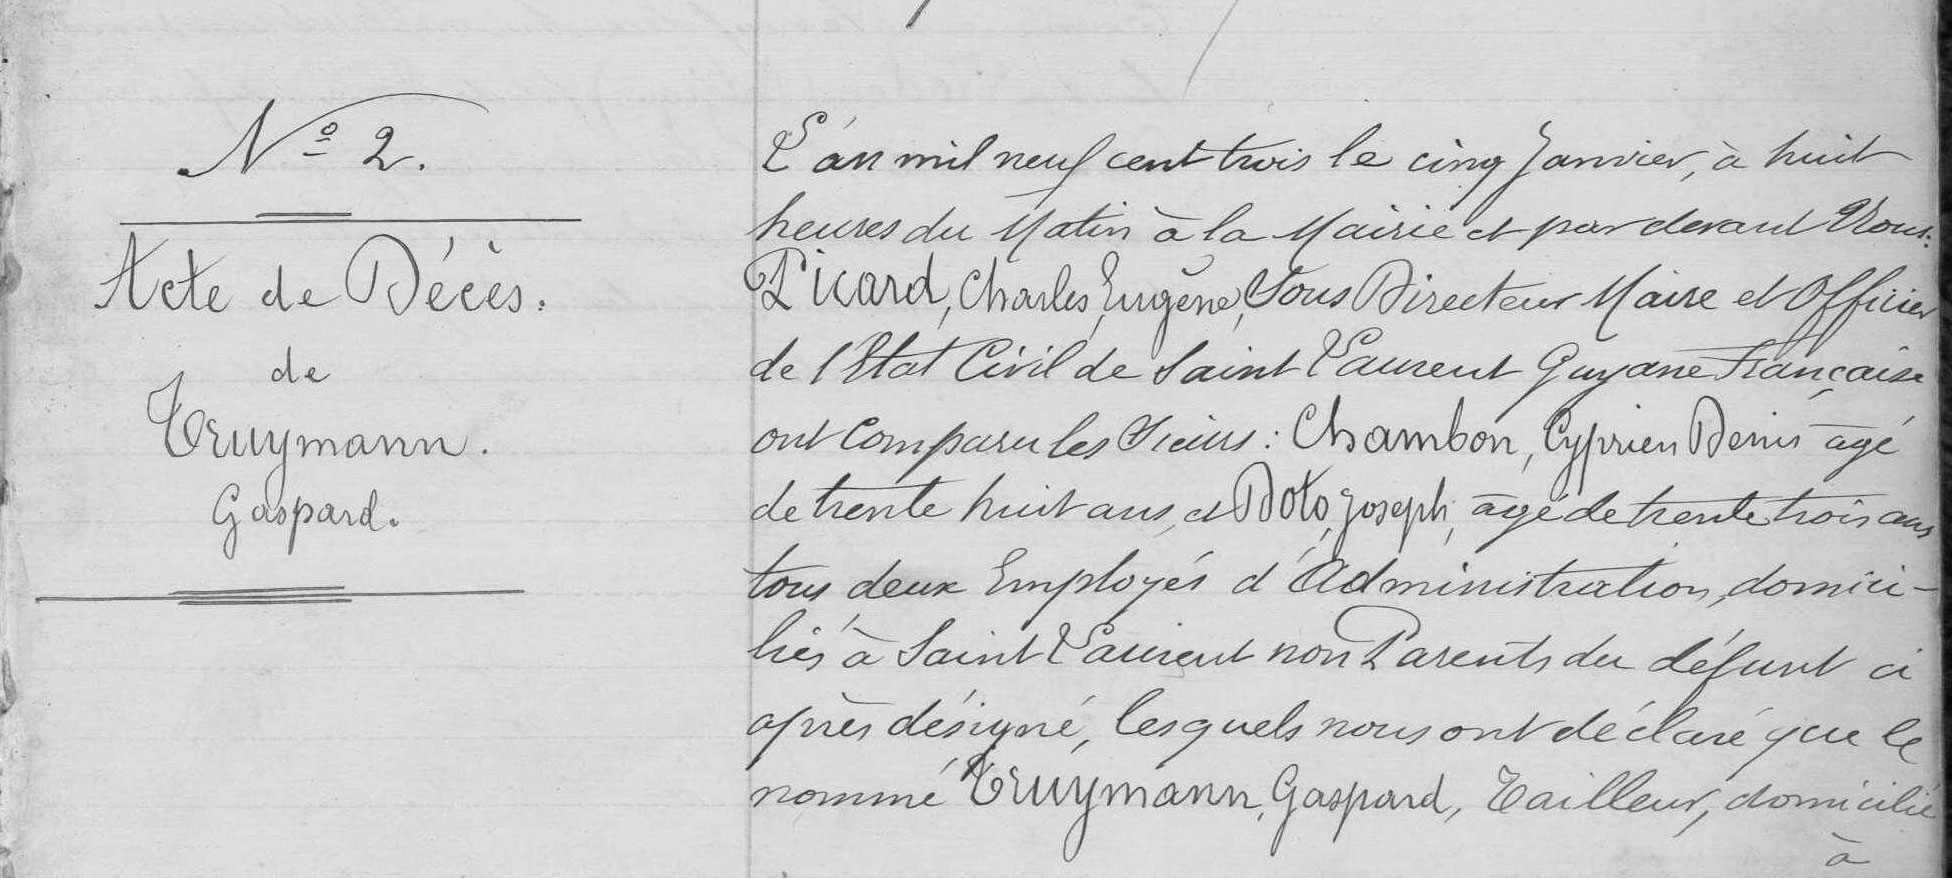 Nº 2.
Acte de Décès.
de
Truymann.
Gaspard.
L'an mil neuf cent trois le cinq Janvier, à huit
heures du Matin à la Mairie et par devant Nous:
Picard, Charles, Eugène, Sous Directeur Maire et Officier
de l'Etat Civil de Saint Laurent Guyane Française
ont Comparu les Sieurs: Chambon, Cyprien Denis âgé
de trente huit ans, et Doto, Joseph, âgé de trente trois ans
tous deux Employés d'Administration, domici-
liés à Saint Laurent non Parents du défunt ci
après désigné, lesquels nous ont déclaré que le
nommé Truymann, Gaspard, Tailleur, domicilié
à